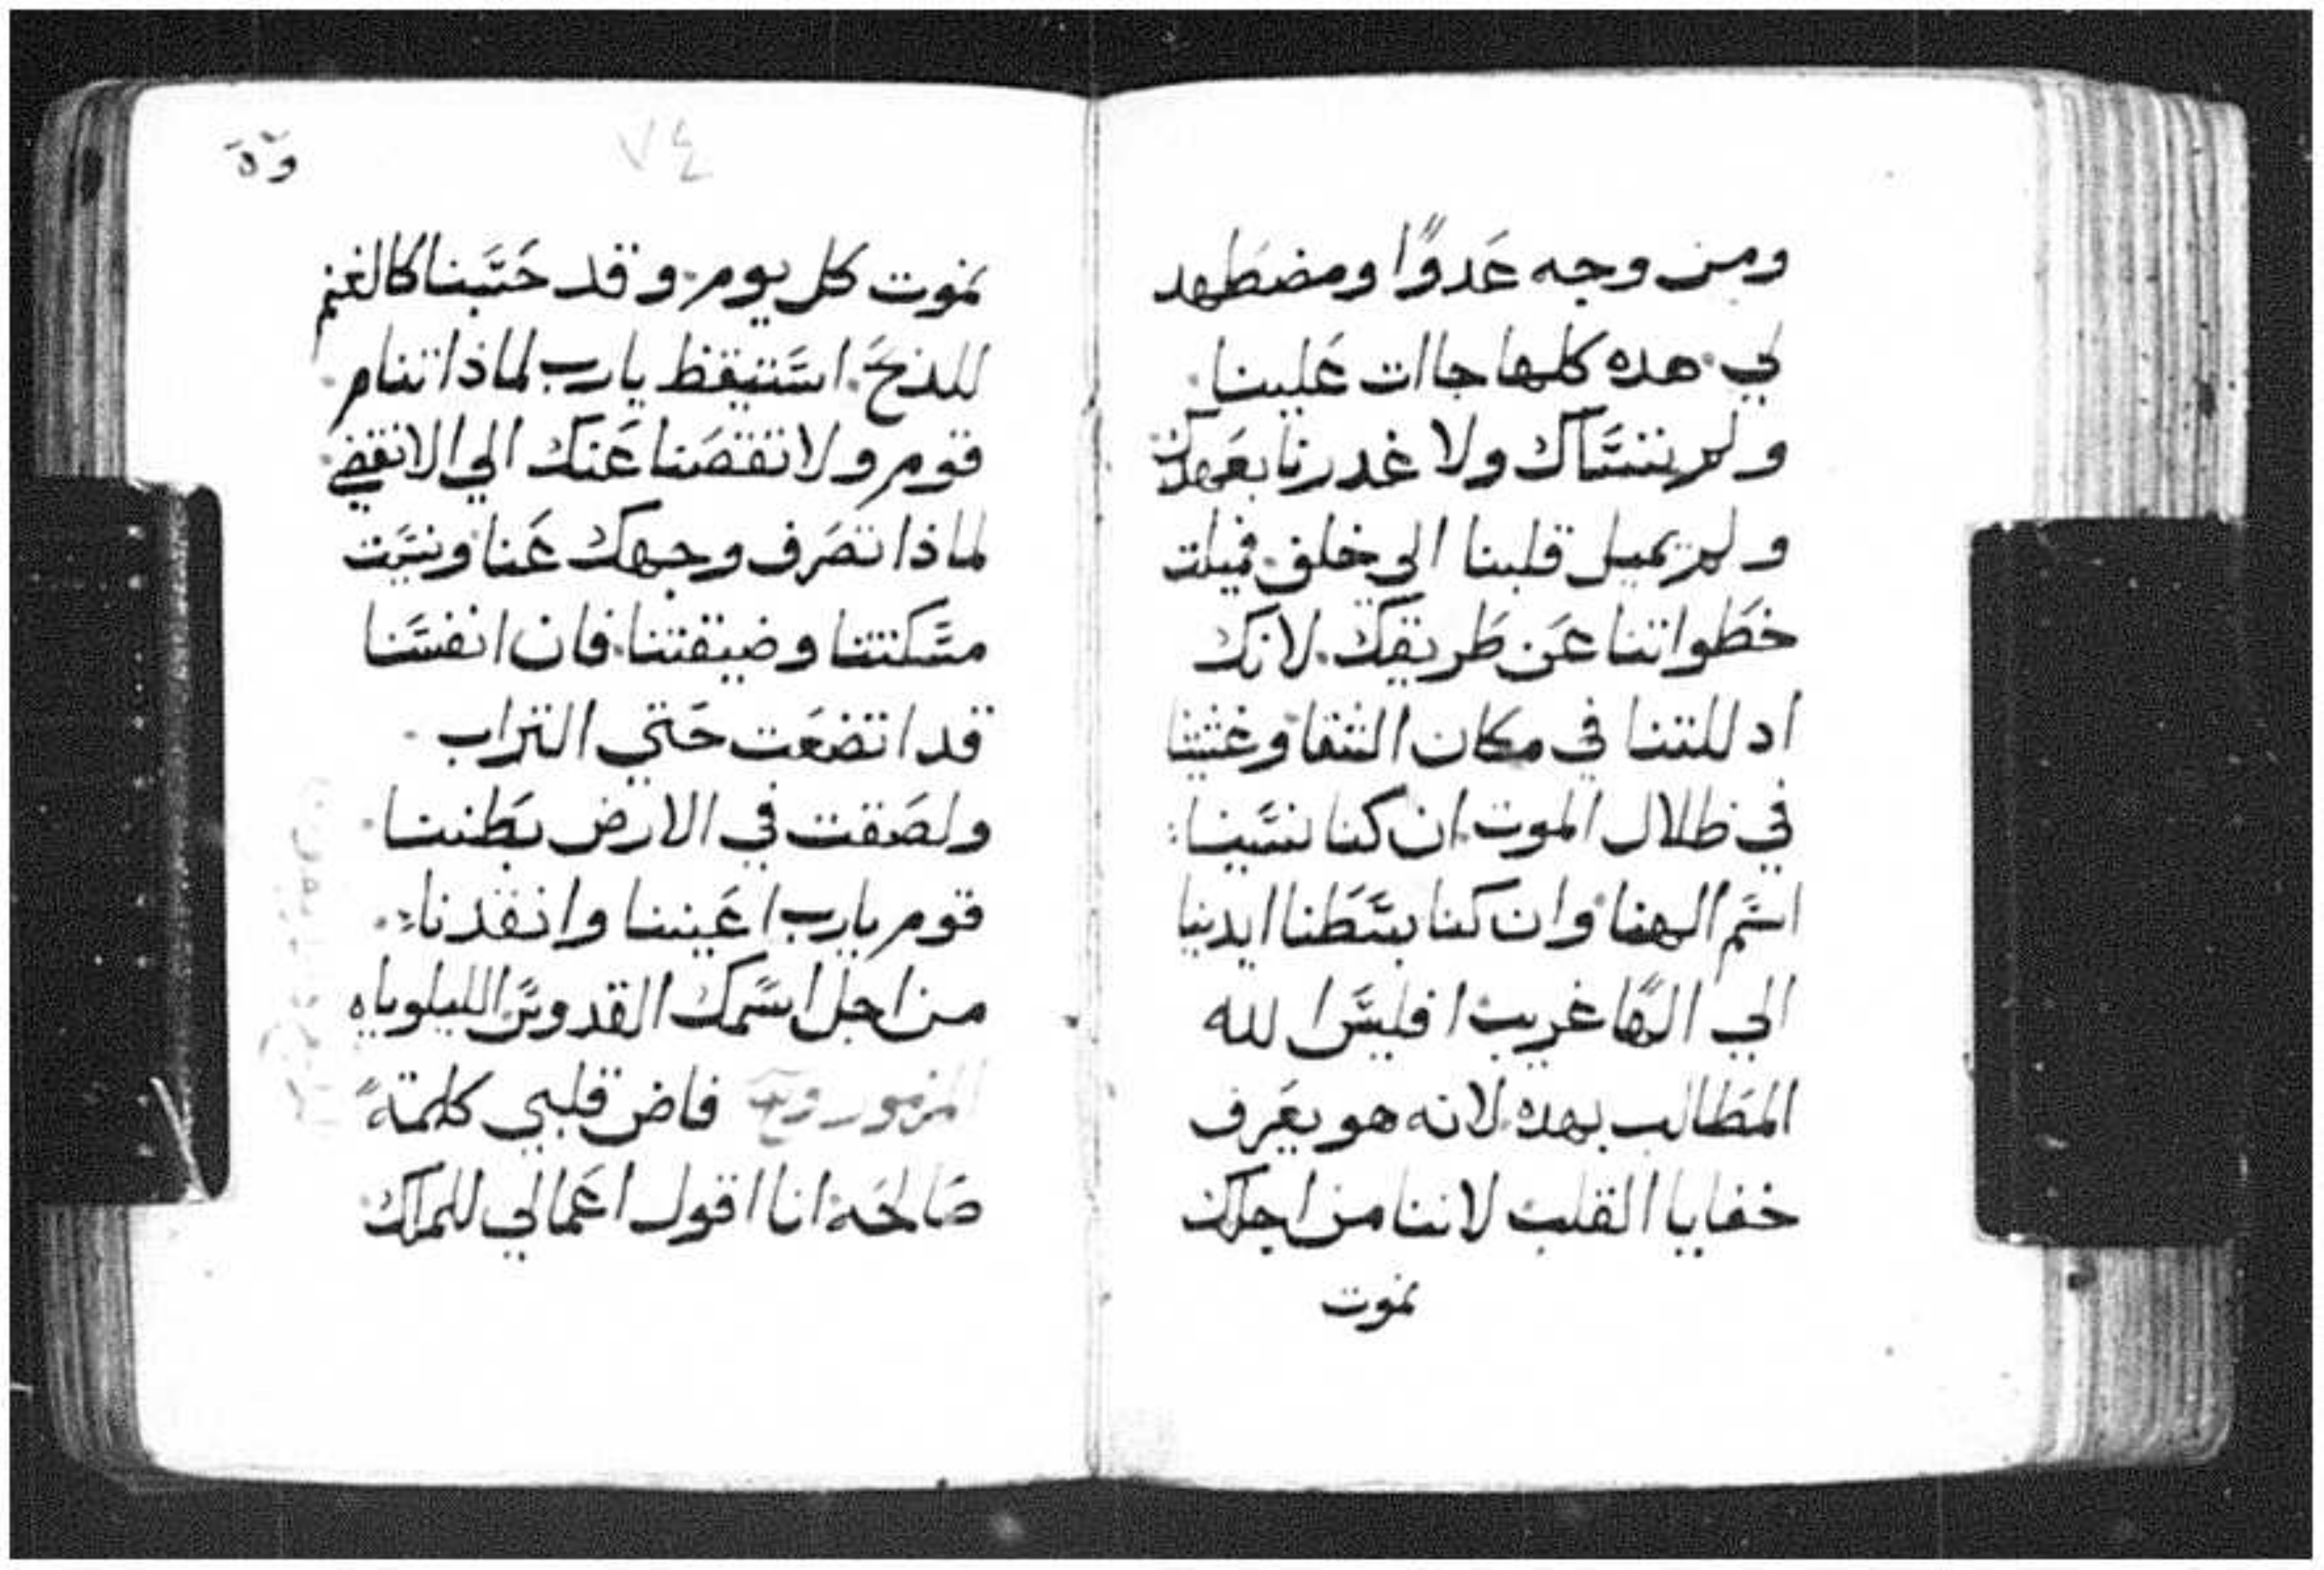 ومن وجه عدوًا ومضطهد
لي هده كلها جاات علينا
ولم ننساك ولا غدرنا بعهدك
ولم يميل قلبنا الي خلف فميلت
خطواتنا عن طريقك لانك
اد للتنا في مكان الشقا وغشيتنا
في ظلال الموت ان كنا نسينا
اسم الهنا وان كنا بسطنا ايدينا
الي الهًا غريب افليس الله
المطالب بهده لانه هو يعرف
خفايا القلب لاننا من اجلك
نموت
٧٤
نموت كل يوم وقد حسبنا كالغنم
للذبح استيقظ يارب لماذا تنام
قوم ولا تقصنا عنك الي الانقضي
لماذا تصرف وجهك عنا ونسيت
مسكنتنا وضيقتنا فان انفسنا
قد اتضعت حتي التراب
ولصقت في الارض بطننا
قوم يارب اعيننا وانقدنا
من اجل اسمك القدوس الليلوياه
المزمور فاض قلبي كلمة
صالحة انا اقول اعمالي للملك